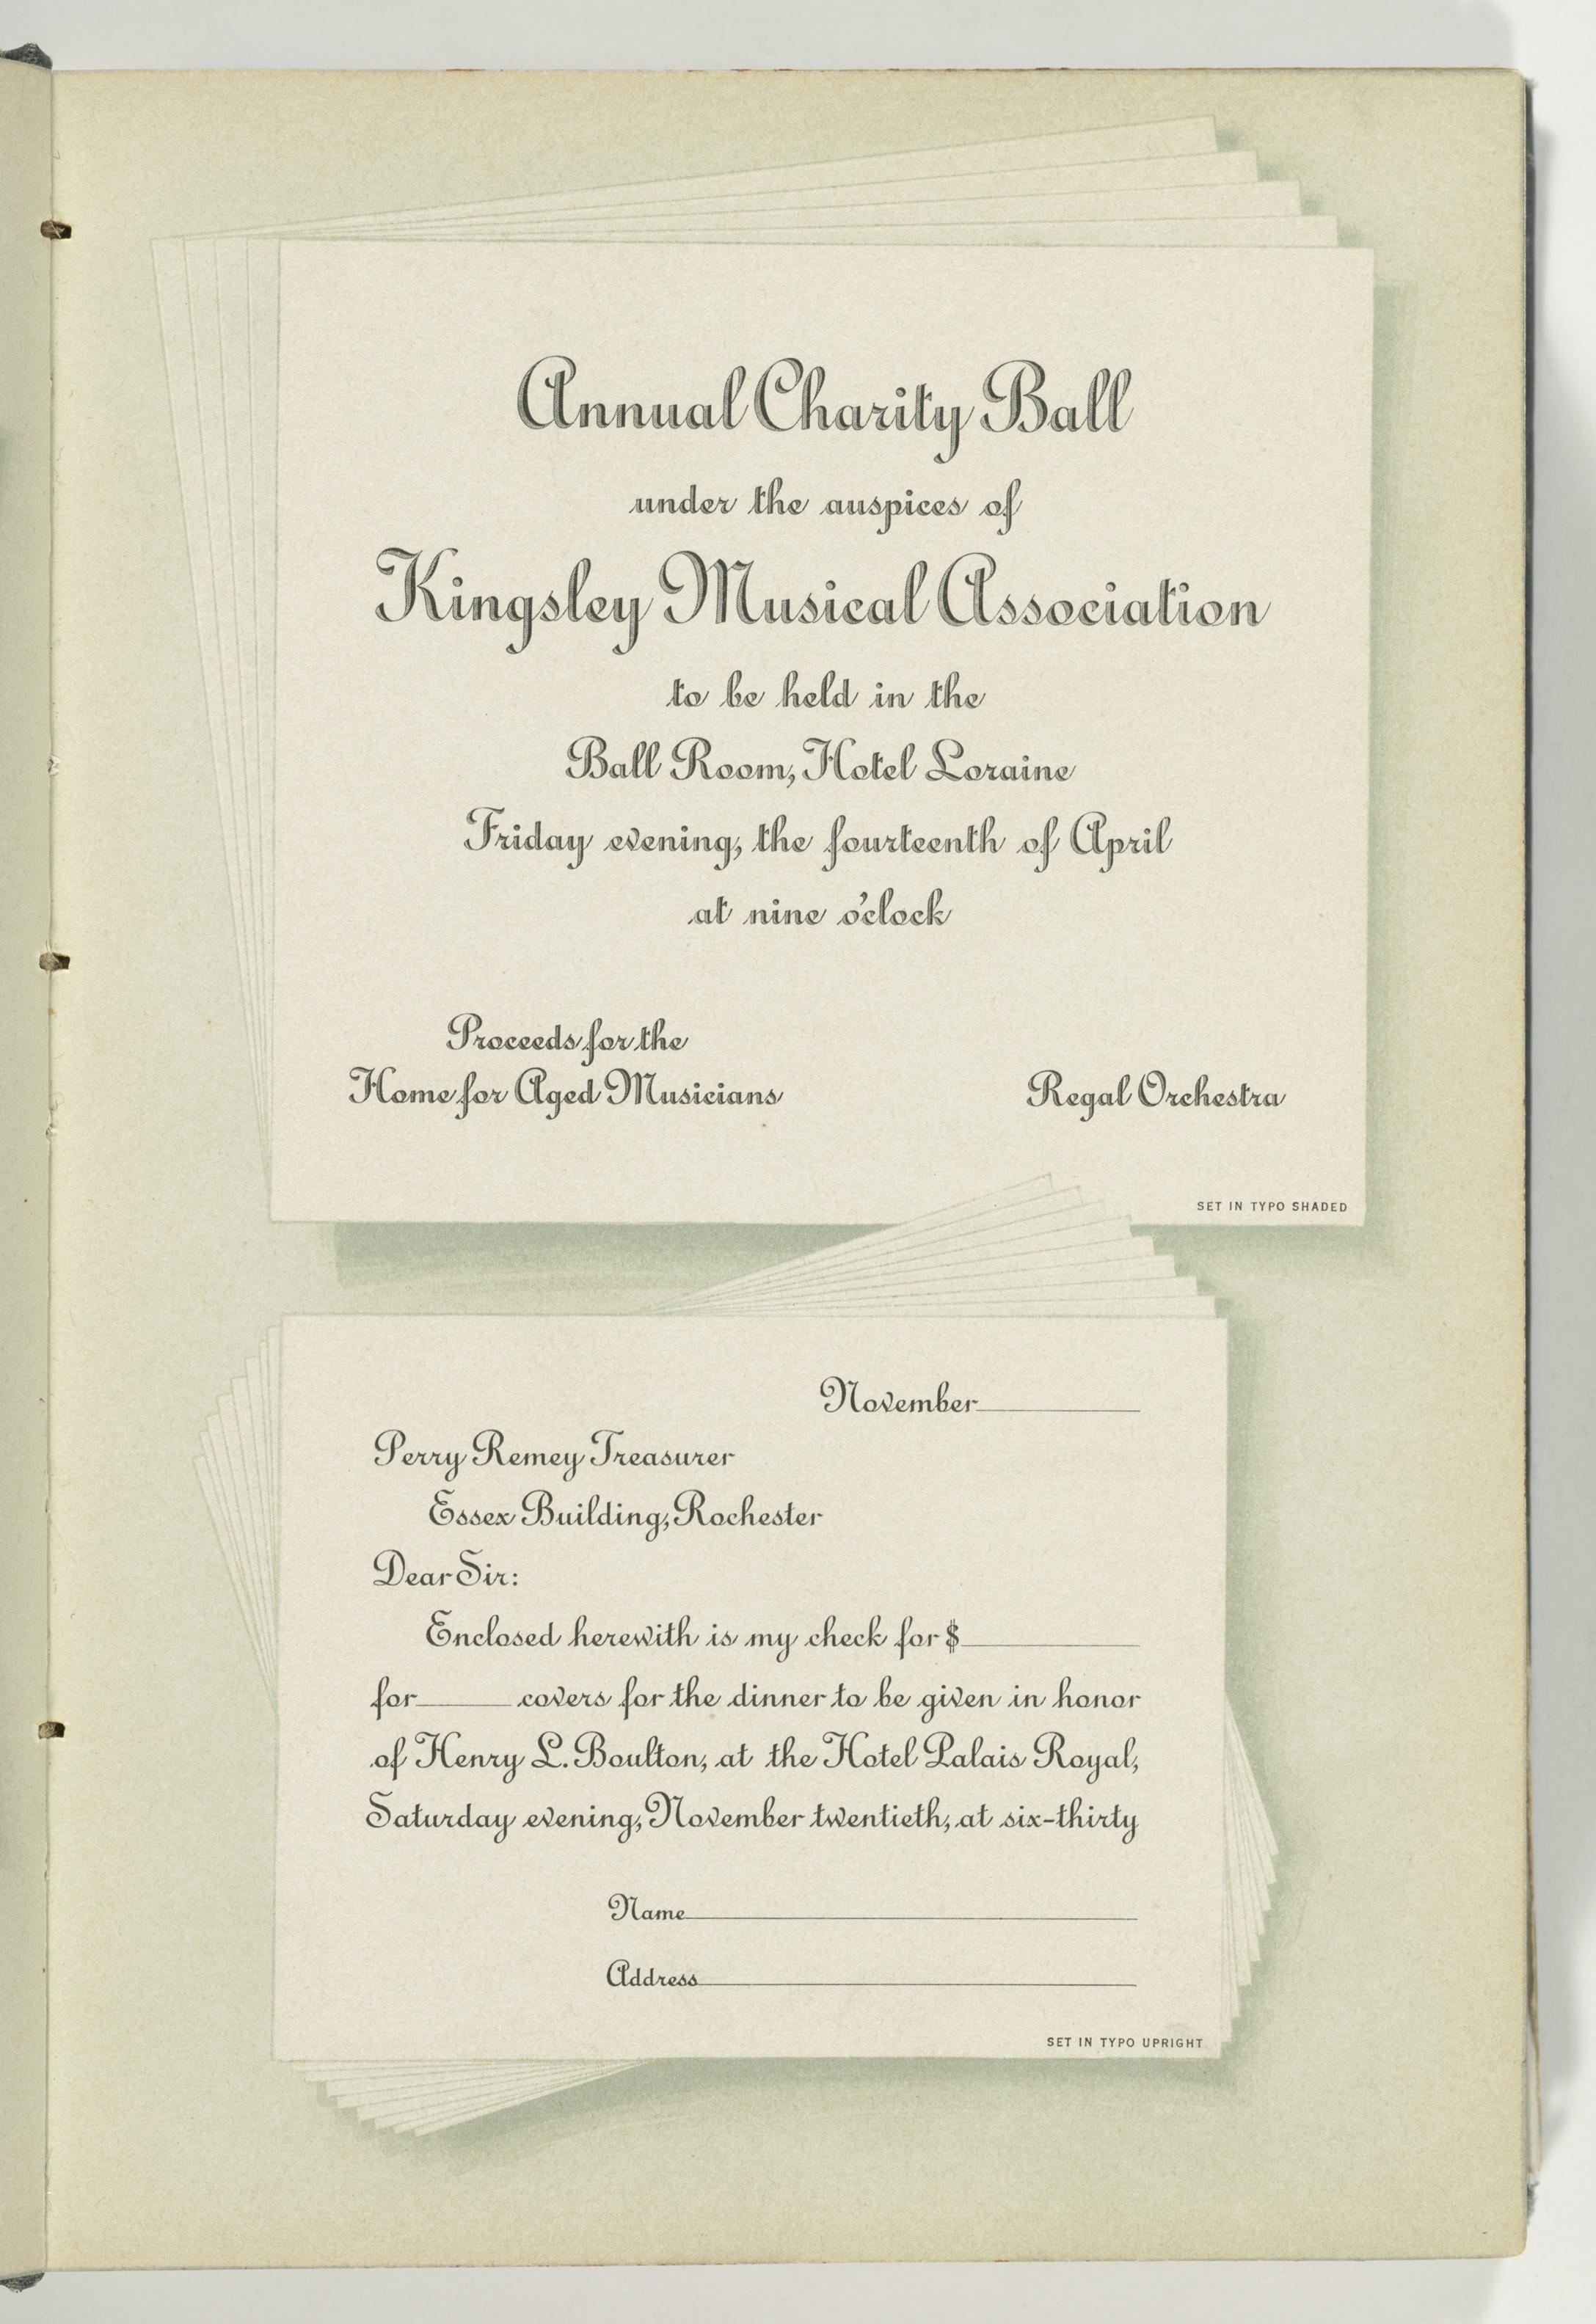 Annual Charity Ball
under the auspices of
Kingsley Musical Association
to be held in the
Ball Room, Hotel Loraine
Friday evening, the fourteenth of April
at nine o'clock
Proceeds for the
Home for Aged Musicians
Regal Orchestra
SET IN TYPO SHADED
November
Perry Remey Treasurer
Essex Building, Rochester
Dear Sir:
Enclosed herewith is my check for $
for covers for the dinner to be given in honor
of Henry L. Boulton, at the Hotel Palais Royal,
Saturday evening, November twentieth, at six-thirty
Name
Address
SET IN TYPO UPRIGHT